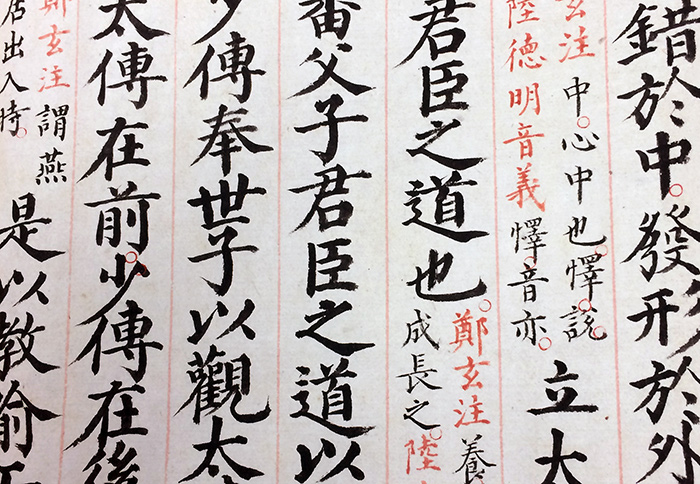 錯於中。發形於外
玄注 中。心中也。懌。說。
陸德明音義 懌。音亦。
立大
君臣之道也。
鄭玄注 養
成長之。陸
審父子君臣之道以
少傅奉世子以觀太
太傅在前。少傅在後
鄭玄注 謂燕
居出入時。
是以教喻